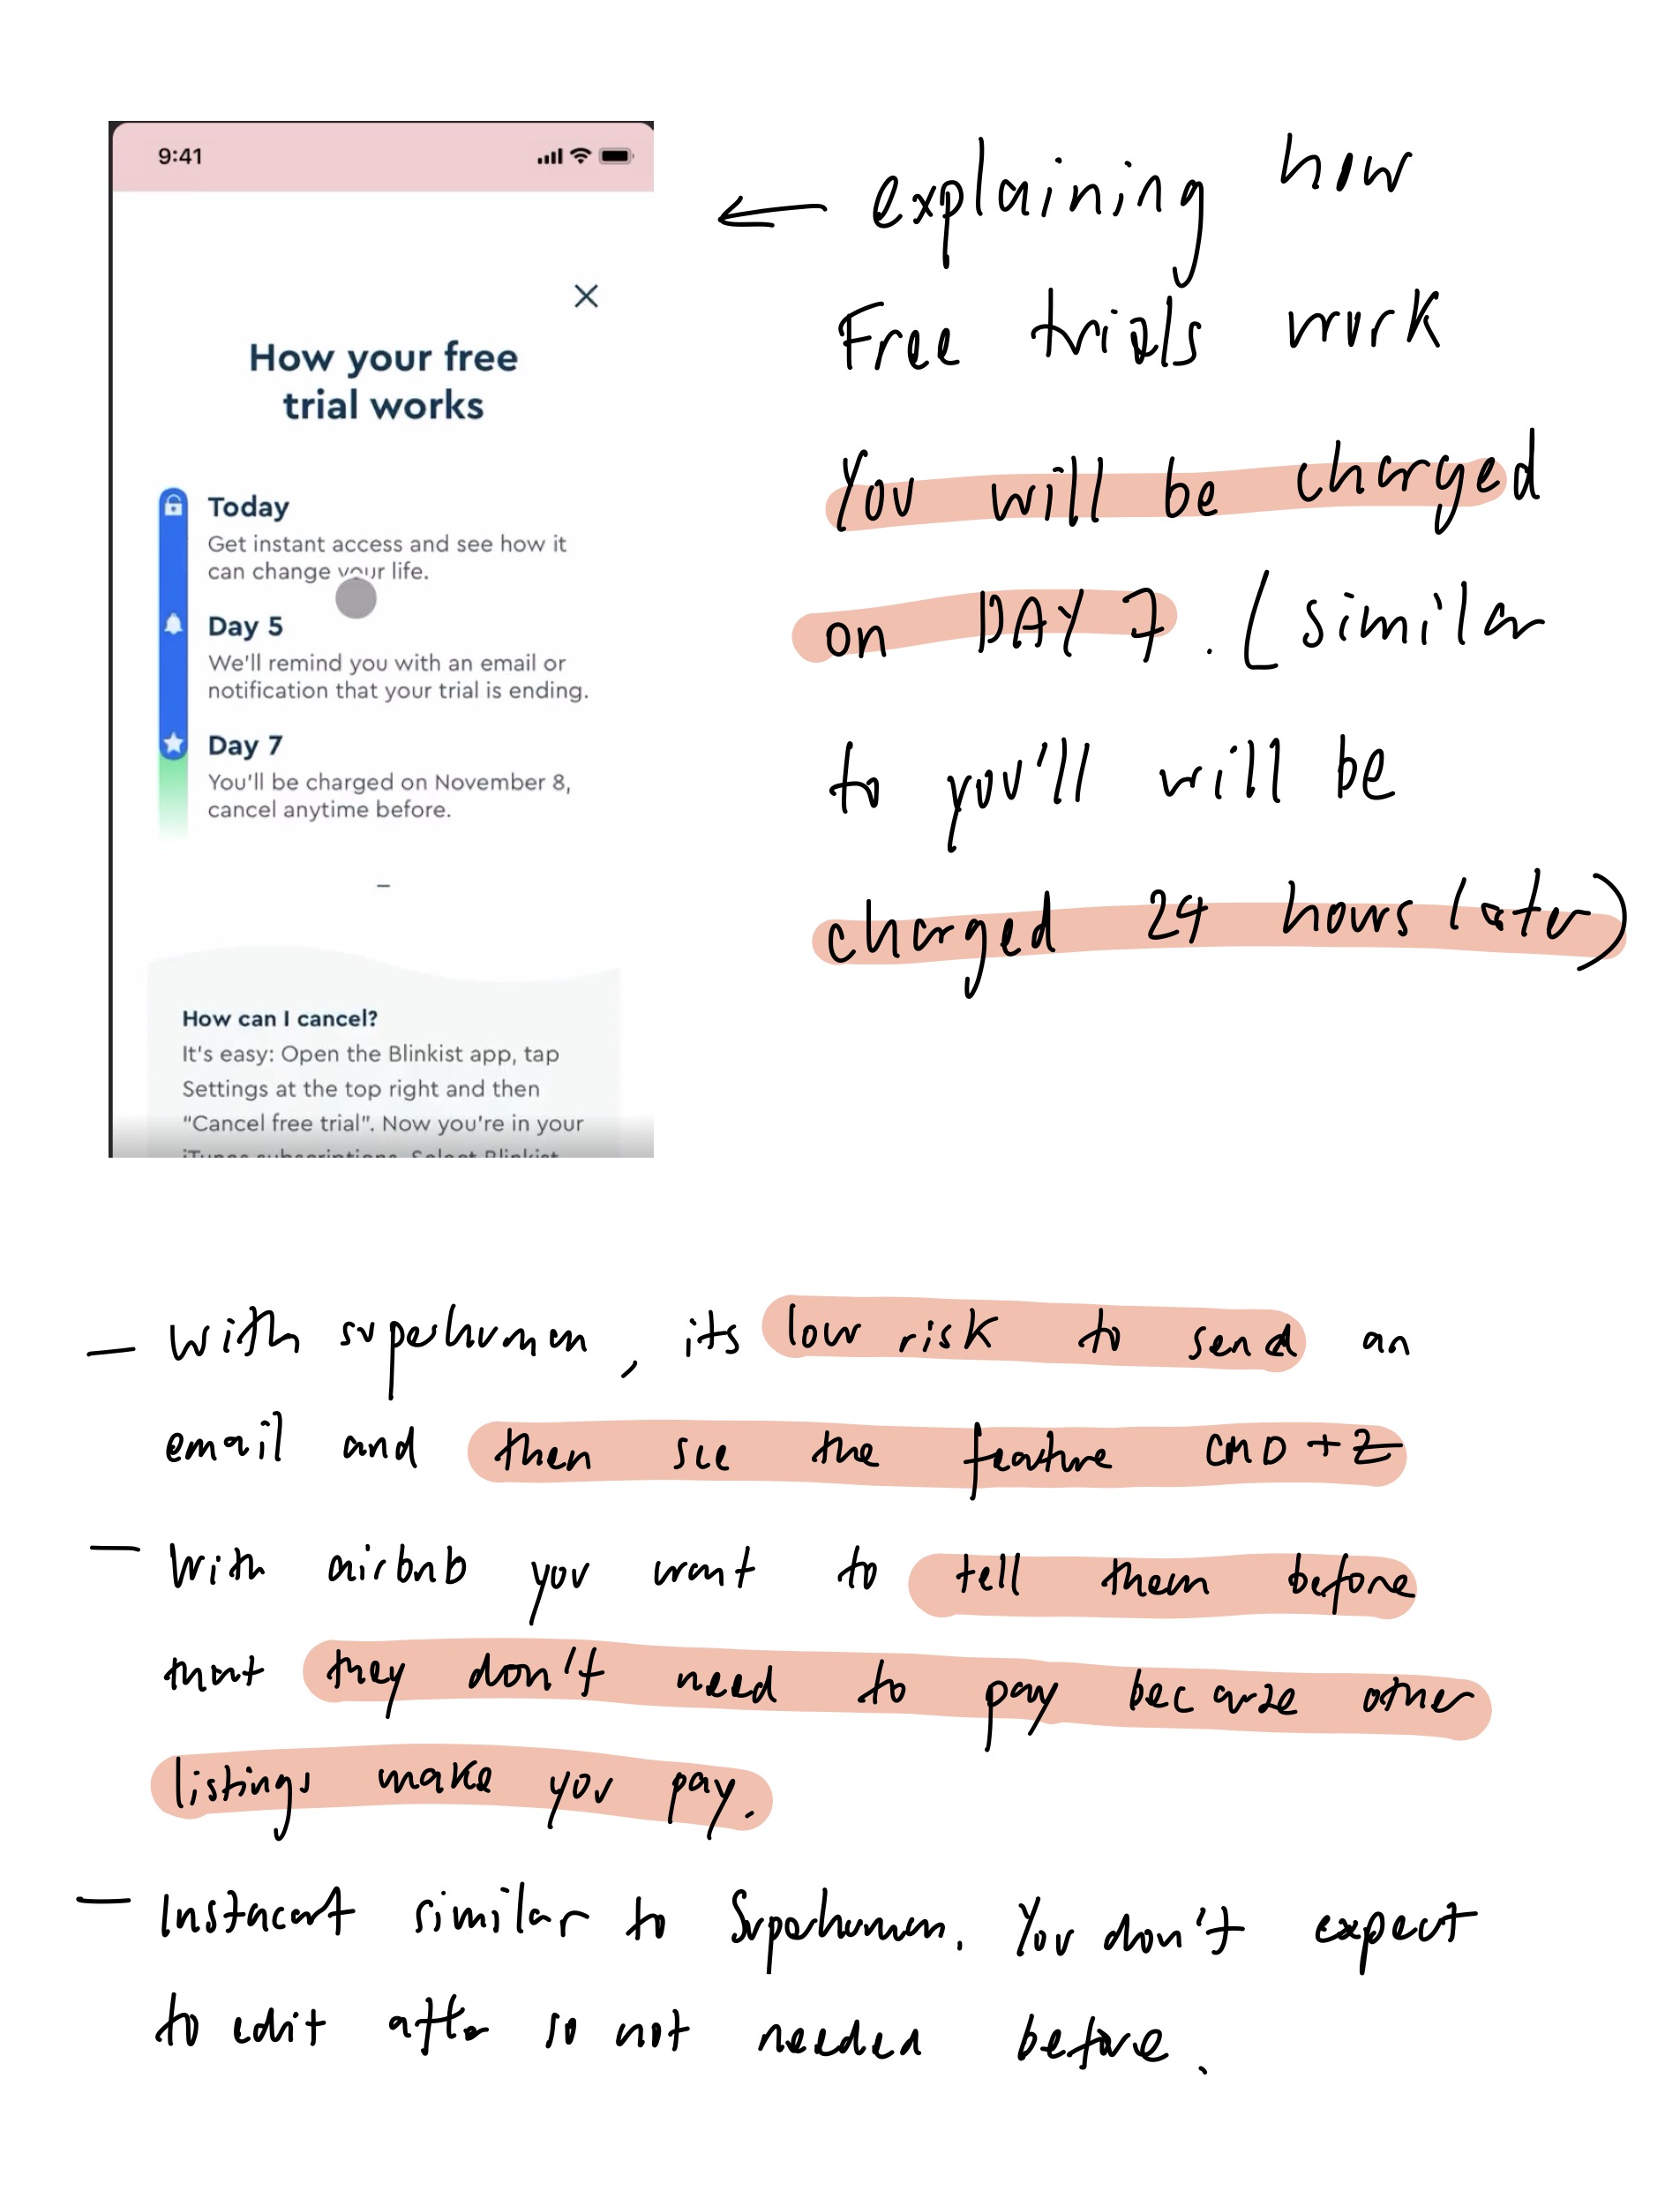 9:41
How your free
trial works
Today
Get instant access and see how it
can change your life.
Day 5
We'll remind you with an email or
notification that your trial is ending.
Day 7
You'll be charged on November 8,
cancel anytime before.
How can I cancel?
It's easy: Open the Blinkist app, tap
Settings at the top right and then
"Cancel free trial". Now you're in your
iTunes subscriptions. Select Blinkist
← explaining how
Free trials work
You will be charged
on DAY 7. (similar
to you'll will be
charged 24 hours later)
— With superhuman, its low risk to send an
email and then see the feature CMD + Z
— With airbnb you want to tell them before
that they don't need to pay because other
listings make you pay.
— Instacart similar to Superhuman. You don't expect
to edit after so not needed before.